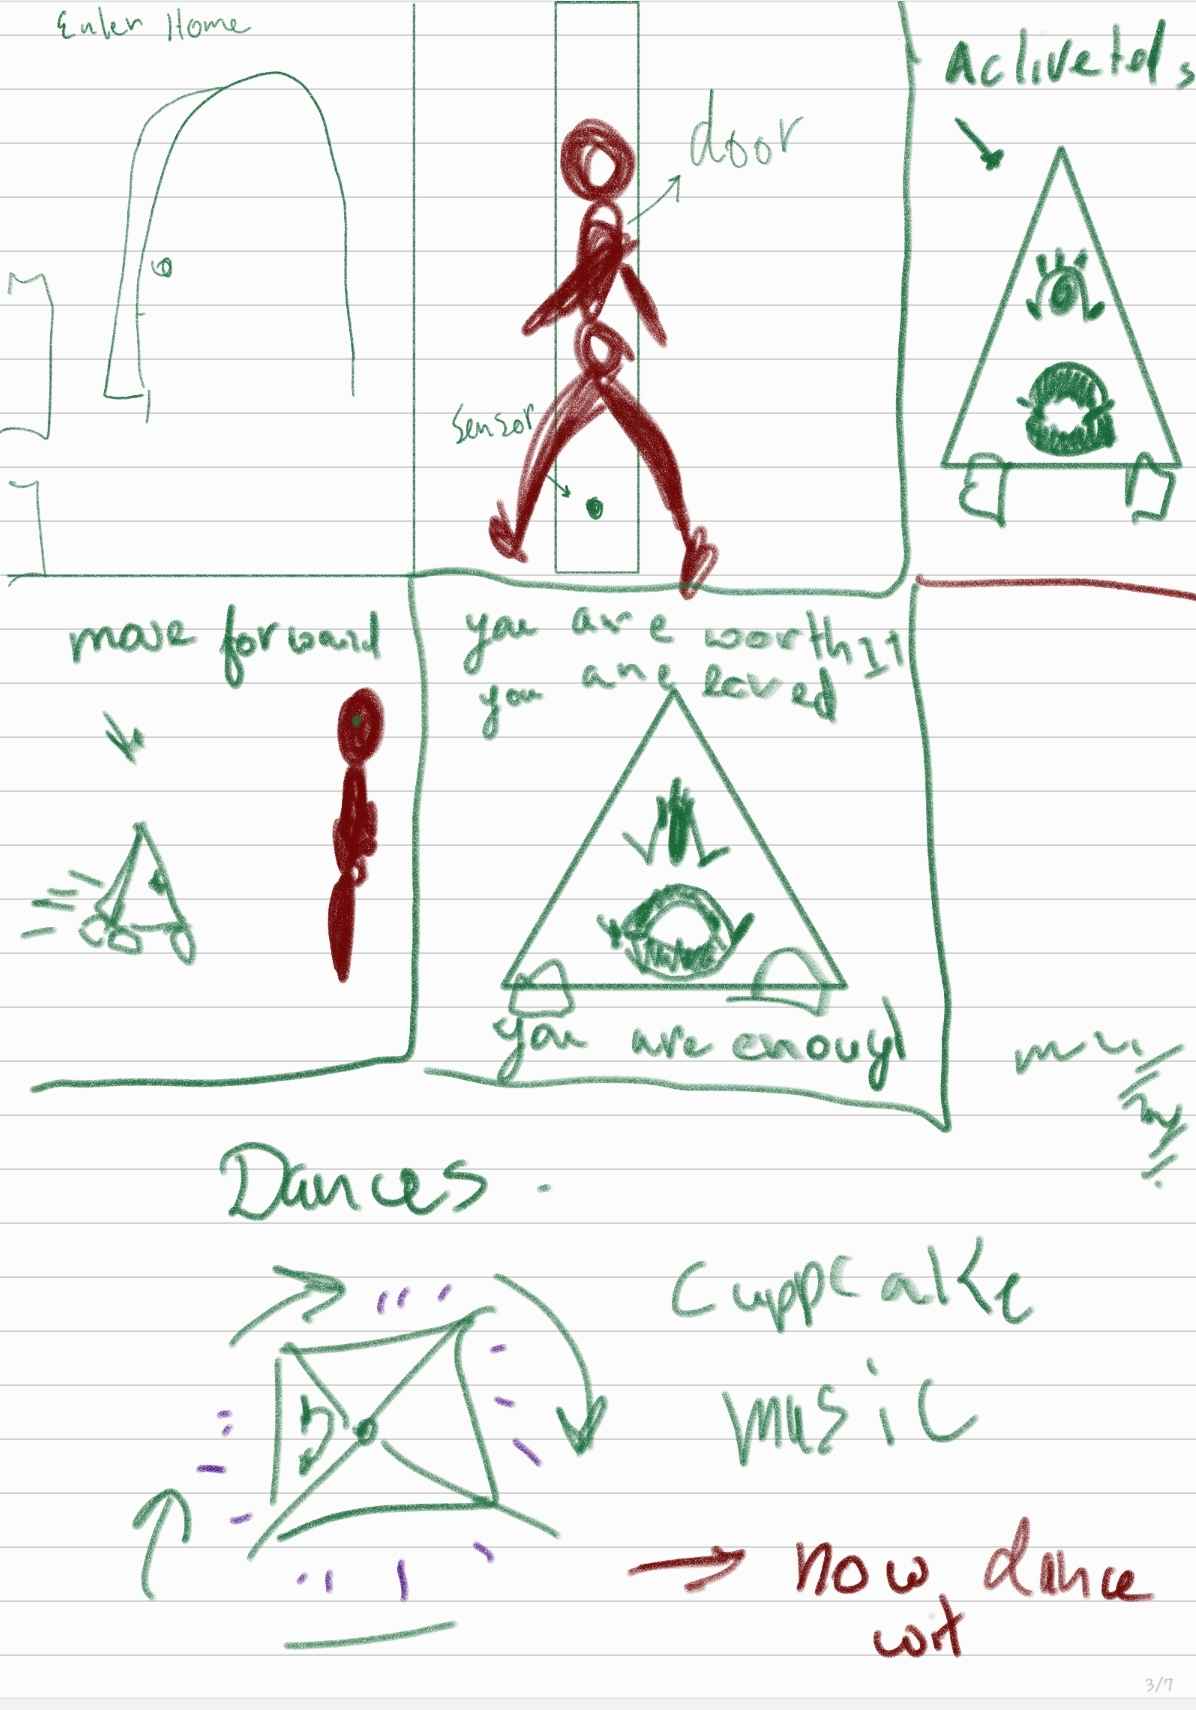 Enter Home
door
Activeted s
sensor
move forward
you are worth It
you are loved
you are enough
Dances.
Cuppcake
music
now dance
wit
3/7